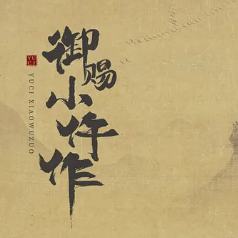 御赐小仵作
YUCI XIAOWUZUO